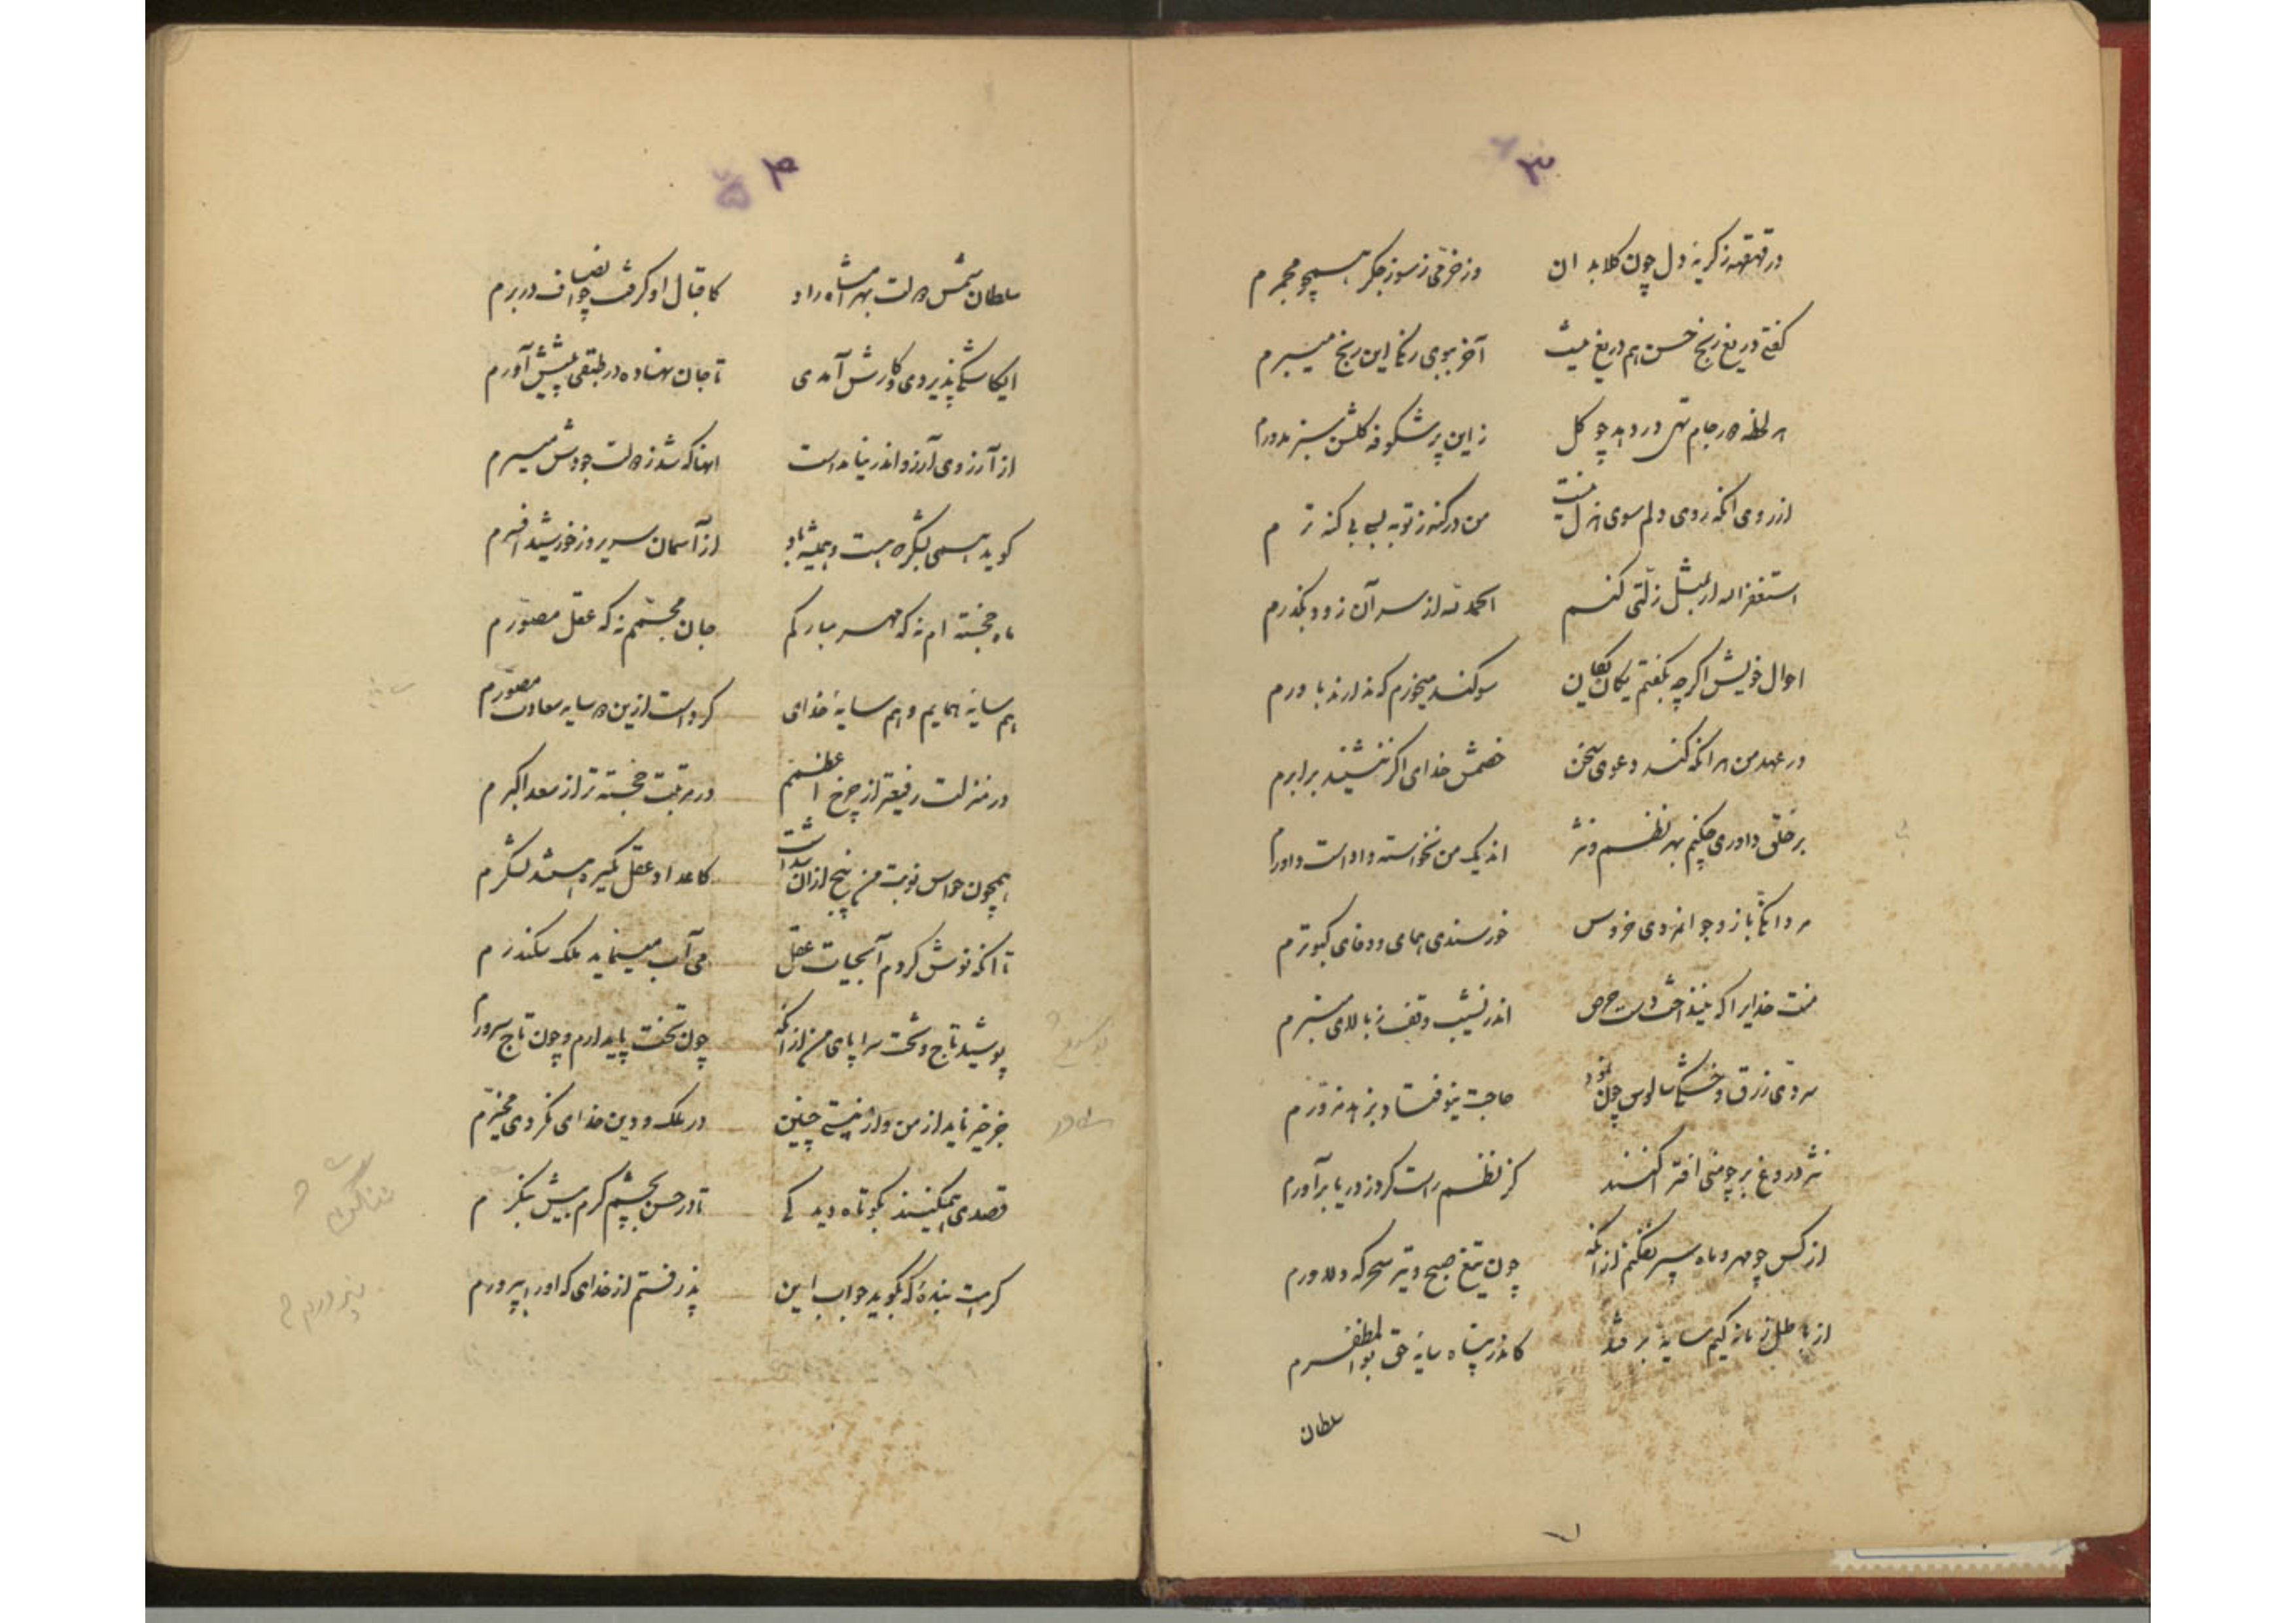 ۳
در قهقهه ز گریه دل چون گلابدان وز خرمی ز سوز جگر همچو مجمرم
گفتی دریغ رنج حسن هم دریغ نیست آخر ببوی رنگ این رنج میبرم
هر لحظه در جام تهی در دهد چو گل زین پرشکوفه گلشن سبز مدورم
از روی آنکه روی دلم سوی هزل نیست من در گنه ز توبه لب بی گنه ترم
استغفر الله ار بمثل زلتی کنم الحمد لله از سر آن زود بگذرم
احوال خویش اگرچه بگفتم یکان یکان سوگند میخورم که ندارند باورم
در عهد من هر آنکه کند دعوی سخن خصمش خدای اگر ننشیند برابرم
بر خلق داوری چکنم بهر نظم و نثر اندیک من نخواسته داداست داورم
مردانگی باز و جوانمردی خروس خورسندی همای و وفای کبوترم
منت خدایرا که نینداخت دست حرص اندر نشیب وقف ز بالای منبرم
سردی زرق و خشکی سالوس چون نمود حاجت نیوفتاد بزهد مزورم
نثر دروغ بر چو منی افترا کنند کز نظم راست گرد ز دریا برآورم
از کس چو مهر و ماه سپر نفکنم از آنکه چون تیغ صبح و تیر سحرگه دلاورم
از باطل زمانه کیم سایه بر فتد کاندر پناه سایه حق بوالمظفرم
سلطان
۴
سلطان شمس دولت بهرامشاه راد کاقبال او گرفت چو انصاف در برم
ایکاشکی پذیردی کارش آمدی تا جان نهاده در طبقی پیشش آورم
از آرزوی آرزو اندر نیامداست آنها که شد ز دولت جودش میسرم
گوید همی بشکر که هست و همیشه باد از آسمان سریر و ز خورشید افسرم
ماه خجسته ام نه که مهر مبارکم جان مجسمم نه که عقل مصورم
هم سایه همایم و هم سایه خدای کرداست ازین دو سایه سعادت مصورم
در منزلت رفیعتر از چرخ اعظمم در مرتبت خجسته تر از سعد اکبرم
همچون حواس نوبت من پنج از آن شداست کاعداد عقل گیرد همیشه لشکرم
تا آنکه نوش کردم آبحیات عقل می آب مینماید ملک سکندرم
پوشید تاج و تخت سراپای من از آنکه چون تخت پایدارم و چون تاج سرورم
جز خیر ناید از من و از نیستی چنین در ملک و دین خدای نکردی مخیرم
قصدی همیکنند بکوتاه دیدگی تا در حسن بچشم کرم بیش ننگرم
کرمت بنده که بگوید جواب این پذرفتم از خدای که او را بپرورم